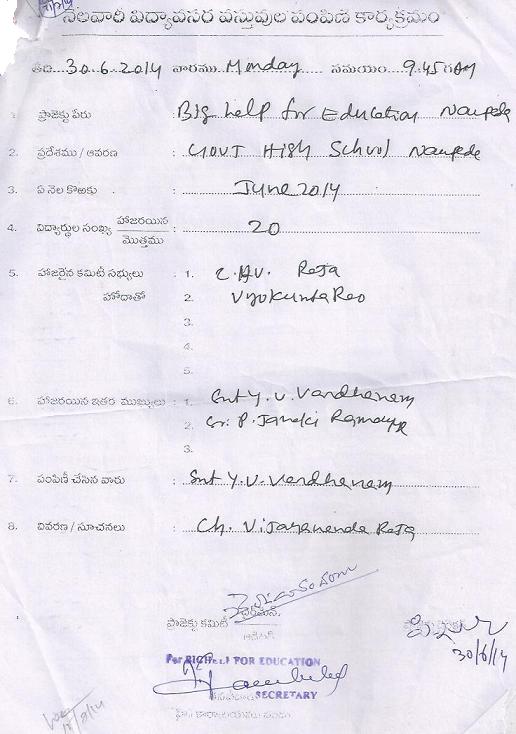 నెలవారీ విద్యావసర వస్తువుల పంపిణి కార్యక్రమం
తేది 30.6.2014 వారము Monday సమయం 9.45 AM
1. ప్రాజెక్టు పేరు : Big help for Education Naupada
2. ప్రదేశము / ఆవరణ : GOVT High School Naupada
3. ఏ నెల కొఱకు : June 2014
4. విద్యార్థుల సంఖ్య హాజరయిన / మొత్తము : 20
5. హాజరైన కమిటీ సభ్యులు : 1. Raja
హోదాతో 2. Vyokunta Rao
3.
4.
5.
6. హాజరయిన ఇతర ముఖ్యులు : 1. Smt Y. V. Vardhanam
2. Sri P. Janaki Ramayya
3.
7. పంపిణీ చేసిన వారు : Smt Y. V. Vardhanam
8. వివరణ / సూచనలు : Ch. Vijayananda Raja
ప్రాజెక్టు కమిటీ ఛైర్మన్
30/6/14
For BIGHELP FOR EDUCATION
SECRETARY